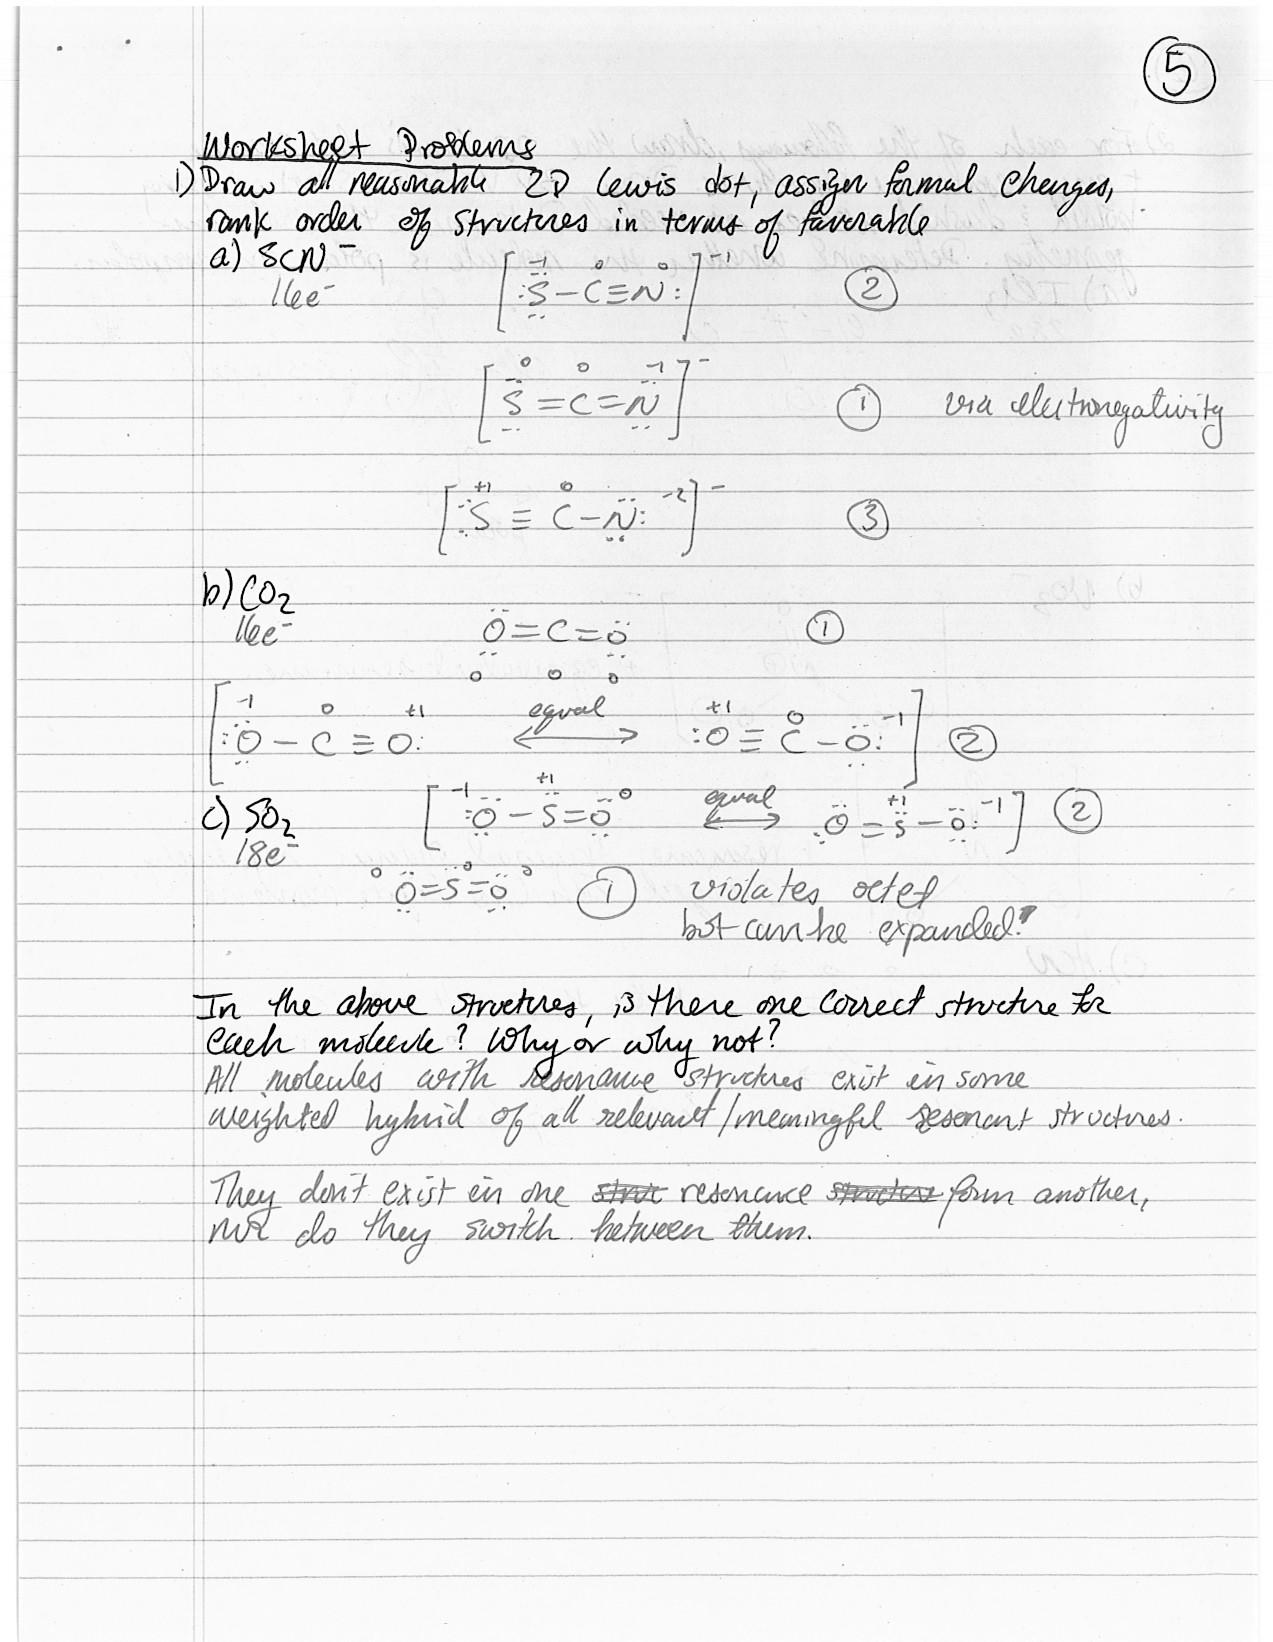 5
Worksheet Problems
1) Draw all reasonable 2D lewis dot, assign formal charges,
rank order of structures in terms of favorable
a) SCN⁻
16e⁻
[:S̈-C≡N:]⁻¹ -1 0 0 ②
[S̈=C=N̈]⁻ 0 0 -1 ① via electronegativity
[:S≡C-N̈:]⁻ +1 0 -2 ③
b) CO₂
16e⁻
Ö=C=Ö ①
0 0 0
[:Ö-C≡O: -1 0 +1 equal ⟷ :O≡C-Ö: +1 0 -1] ②
c) SO₂
18e⁻
[:Ö-S̈=Ö -1 +1 0 equal ⟷ Ö=S̈-Ö: +1 -1] ②
Ö=S̈=Ö 0 0 0 ① violates octet
but can be expanded!
In the above structures, is there one correct structure for
each molecule? Why or why not?
All molecules with resonance structures exist in some
weighted hybrid of all relevant/meaningful resonant structures.
They don't exist in one resonance form another,
nor do they switch between them.